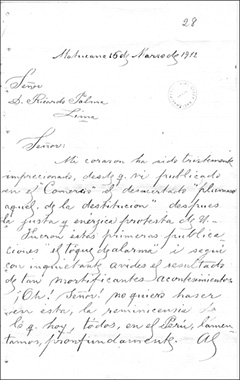 28
Matucana 16 de Marzo de 1912
Señor
D. Ricardo Palma
Lima
Señor:
Mi corazon ha sido tristemente
impresionado, desde q. vi publicado
en el "Comercio" el desacertado "plumazo
aquel, de la destitucion" despues
la justa y enérgica protesta de U.—
Fueron estas primeras publica
ciones "el toque de alarma" i segui
con inquietante avides el resultado
de tan mortificantes acontecimientos
¡Oh! Señor! no quiero haser
en esta, la reminicencia
lo q. hoy, todos, en el Perú, lamen
tamos, pronfundamente. Al